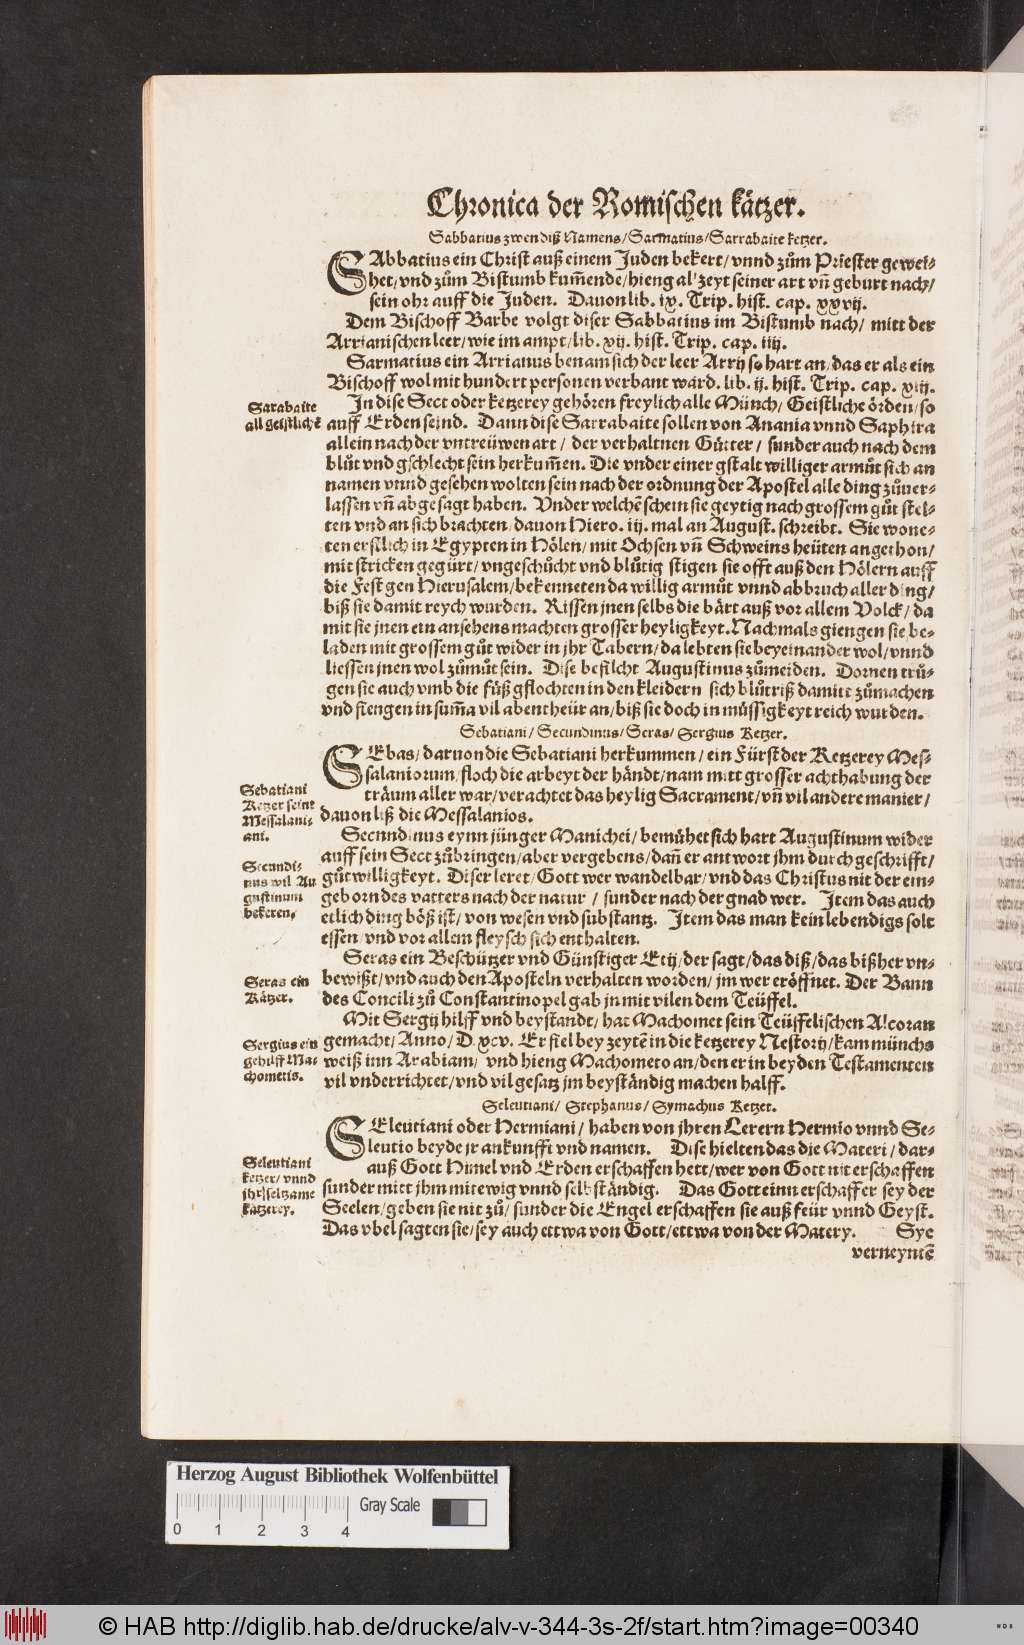 Chronica der Romischen kätzer.
Sabbatius zwen diß Namens/Sarmatius/Sarrabaite ketzer.
SAbbatius ein Christ auß einem Juden bekert/vnnd zům Priester gewei-
het/vnd zům Bistumb kum̃ende/hieng al zeyt seiner art vñ geburt nach/
sein ohr auff die Juden. Dauon lib. ix. Trip. hist. cap. xxvij.
Dem Bischoff Barbe volgt diser Sabbatius im Bistumb nach/ mitt der
Arrianischen leer/wie im ampt/lib. xij. hist. Trip. cap. iiij.
Sarmatius ein Arrianus benam sich der leer Arrij so hart an/das er als ein
Bischoff wol mit hundert personen verbant ward. lib. ij. hist. Trip. cap. xiij.
Sarabaite
all geistlichẽ
In dise Sect oder ketzerey gehören freylich alle Münch/ Geistliche örden/so
auff Erden seind. Dann dise Sarrabaite sollen von Anania vnnd Saphira
allein nach der vntreüwen art/ der verhaltnen Gütter/ sunder auch nach dem
blůt vnd gschlecht sein herkum̃en. Die vnder einer gstalt williger armůt sich an
namen vnnd gesehen wolten sein nach der ordnung der Apostel alle ding zůuer-
lassen vñ abgesagt haben. Vnder welchẽ schein sie geytig nach grossem gůt stel-
ten vnd an sich brachten/dauon Hiero. iij. mal an August. schreibt. Sie wone-
ten erstlich in Egypten in Hölen/mit Ochsen vñ Schweins heüten angethon/
mit stricken gegürt/vngeschůcht vnd blůtig stigen sie offt auß den Hölern auff
die Fest gen Hierusalem/bekenneten da willig armůt vnnd abbruch aller ding/
biß sie damit reych wurden. Rissen jnen selbs die bärt auß vor allem Volck/da
mit sie jnen ein ansehens machten grosser heyligkeyt. Nachmals giengen sie be-
laden mit grossem gůt wider in jhr Tabern/da lebten sie beyeinander wol/vnnd
liessen jnen wol zůmůt sein. Dise befilcht Augustinus zůmeiden. Dornen trů-
gen sie auch vmb die füß gflochten in den kleidern sich blůtriß damitt zůmachen
vnd fiengen in sum̃a vil abentheür an/biß sie doch in müssigkeyt reich wurden.
Sebatiani/ Secundinus/ Seras/ Sergius Ketzer.
SEbas/daruon die Sebatiani herkummen/ein Fürst der Ketzerey Mes-
salaniorum/floch die arbeyt der händt/nam mitt grosser achthabung der
träum aller war/verachtet das heylig Sacrament/vñ vil andere manier/
dauon liß die Messalanios.
Sebatiani
Ketzer seint
Messalani-
ani.
Secundinus eynn jünger Manichei/bemühet sich hart Augustinum wider
auff sein Sect zůbringen/aber vergebens/dañ er antwort jhm durch geschrifft/
gůtwilligkeyt. Diser leret/Gott wer wandelbar/vnd das Christus nit der ein-
geborn des vatters nach der natur/ sunder nach der gnad wer. Item das auch
etlich ding böß ist/von wesen vnd substantz. Item das man kein lebendigs solt
essen/vnd vor allem fleysch sich enthalten.
Secundi-
nus wil Au
gustinum
bekeren.
Seras ein Beschützer vnd Günstiger Etij/der sagt/das diß/das bißher vn-
bewißt/vnd auch den Aposteln verhalten worden/jm wer eröffnet. Der Bann
des Concili zů Constantinopel gab jn mit vilen dem Teüffel.
Seras ein
Kätzer.
Mit Sergij hilff vnd beystandt/hat Machomet sein Teüffelischen Alcoran
gemacht/Anno/D.xcv. Er fiel bey zeytẽ in die ketzerey Nestorij/kam münchs
weiß inn Arabiam/ vnd hieng Machometo an/den er in beyden Testamenten
vil vnderrichtet/vnd vil gesatz jm beyständig machen halff.
Sergius ein
gehilff Ma-
chometis.
Seleutiani/ Stephanus/ Symachus Ketzer.
SEleutiani oder Hermiani/ haben von jhren Lerern Hermio vnnd Se-
leutio beyde jr ankunfft vnd namen. Dise hielten das die Materi/ dar-
auß Gott Himel vnd Erden erschaffen hett/wer von Gott nit erschaffen
sunder mitt jhm mitewig vnnd selbständig. Das Gott einn erschaffer sey der
Seelen/geben sie nit zů/ sunder die Engel erschaffen sie auß feür vnnd Geyst.
Das vbel sagten sie/sey auch ettwa von Gott/ettwa von der Matery. Sye
verneyntẽ
Seleutiani
ketzer/ vnnd
jhr seltzame
kätzerey.
Herzog August Bibliothek Wolfenbüttel
Gray Scale
0 1 2 3 4
© HAB http://diglib.hab.de/drucke/alv-v-344-3s-2f/start.htm?image=00340